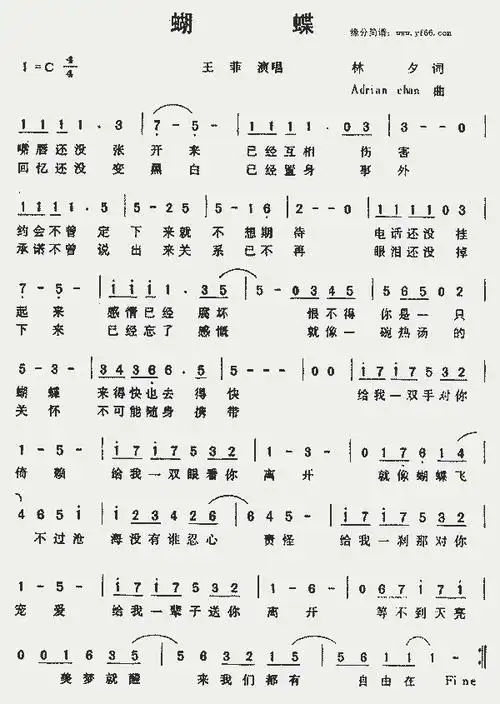 蝴 蝶
缘分简谱: www.yf66.com
1=C 4/4 王菲 演唱 林 夕 词
Adrian chan 曲
1 1 1 1 . 3 | 7 - 5 - | 1 1 1 1 . 0 3 | 3 - - 0 |
嘴唇还没 张 开 来 已经互相 伤 害
回忆还没 变 黑 白 已经置身 事 外
1 1 1 1 . 5 | 5 - 2 5 | 5 - 1 6 | 2 - - 0 | 1 1 1 1 0 3 |
约会不曾 定 下 来就 不 想期 待 电话还没 挂
承诺不曾 说 出 来关 系 已不 再 眼泪还没 掉
7 - 5 - | i i i i . 3 5 | 5 - 0 0 3 4 5 | 5 6 5 0 2 |
起 来 感情已经 腐坏 恨不得 你是一只
下 来 已经忘了 感慨 就像一 碗热汤的
5 - 3 - | 3 4 3 6 6 . 5 | 5 - - - | 0 0 i 7 i 7 5 3 2 |
蝴 蝶 来得快也去 得快 给我一双手对你
关 怀 不可能随身 携带
1 - 5 - | i 7 i 7 5 3 2 | 1 - 3 - | 0 1 7 6 1 4 |
倚 赖 给我一双眼看你 离 开 就像蝴蝶飞
4 6 5 i | 1 2 3 4 2 6 | 6 4 5 - | i 7 i 7 5 3 2 |
不过沧 海没有谁忍心 责怪 给我一刹那对你
1 - 5 - | i 7 i 7 5 3 2 | 1 - 6 - | 0 6 7 1 7 1 |
宠 爱 给我一辈子送你 离 开 等不到天亮
0 0 1 6 3 5 | 5 6 3 2 1 5 | 5 6 1 1 1 - ‖
美梦就醒 来我们都有 自由在 Fine